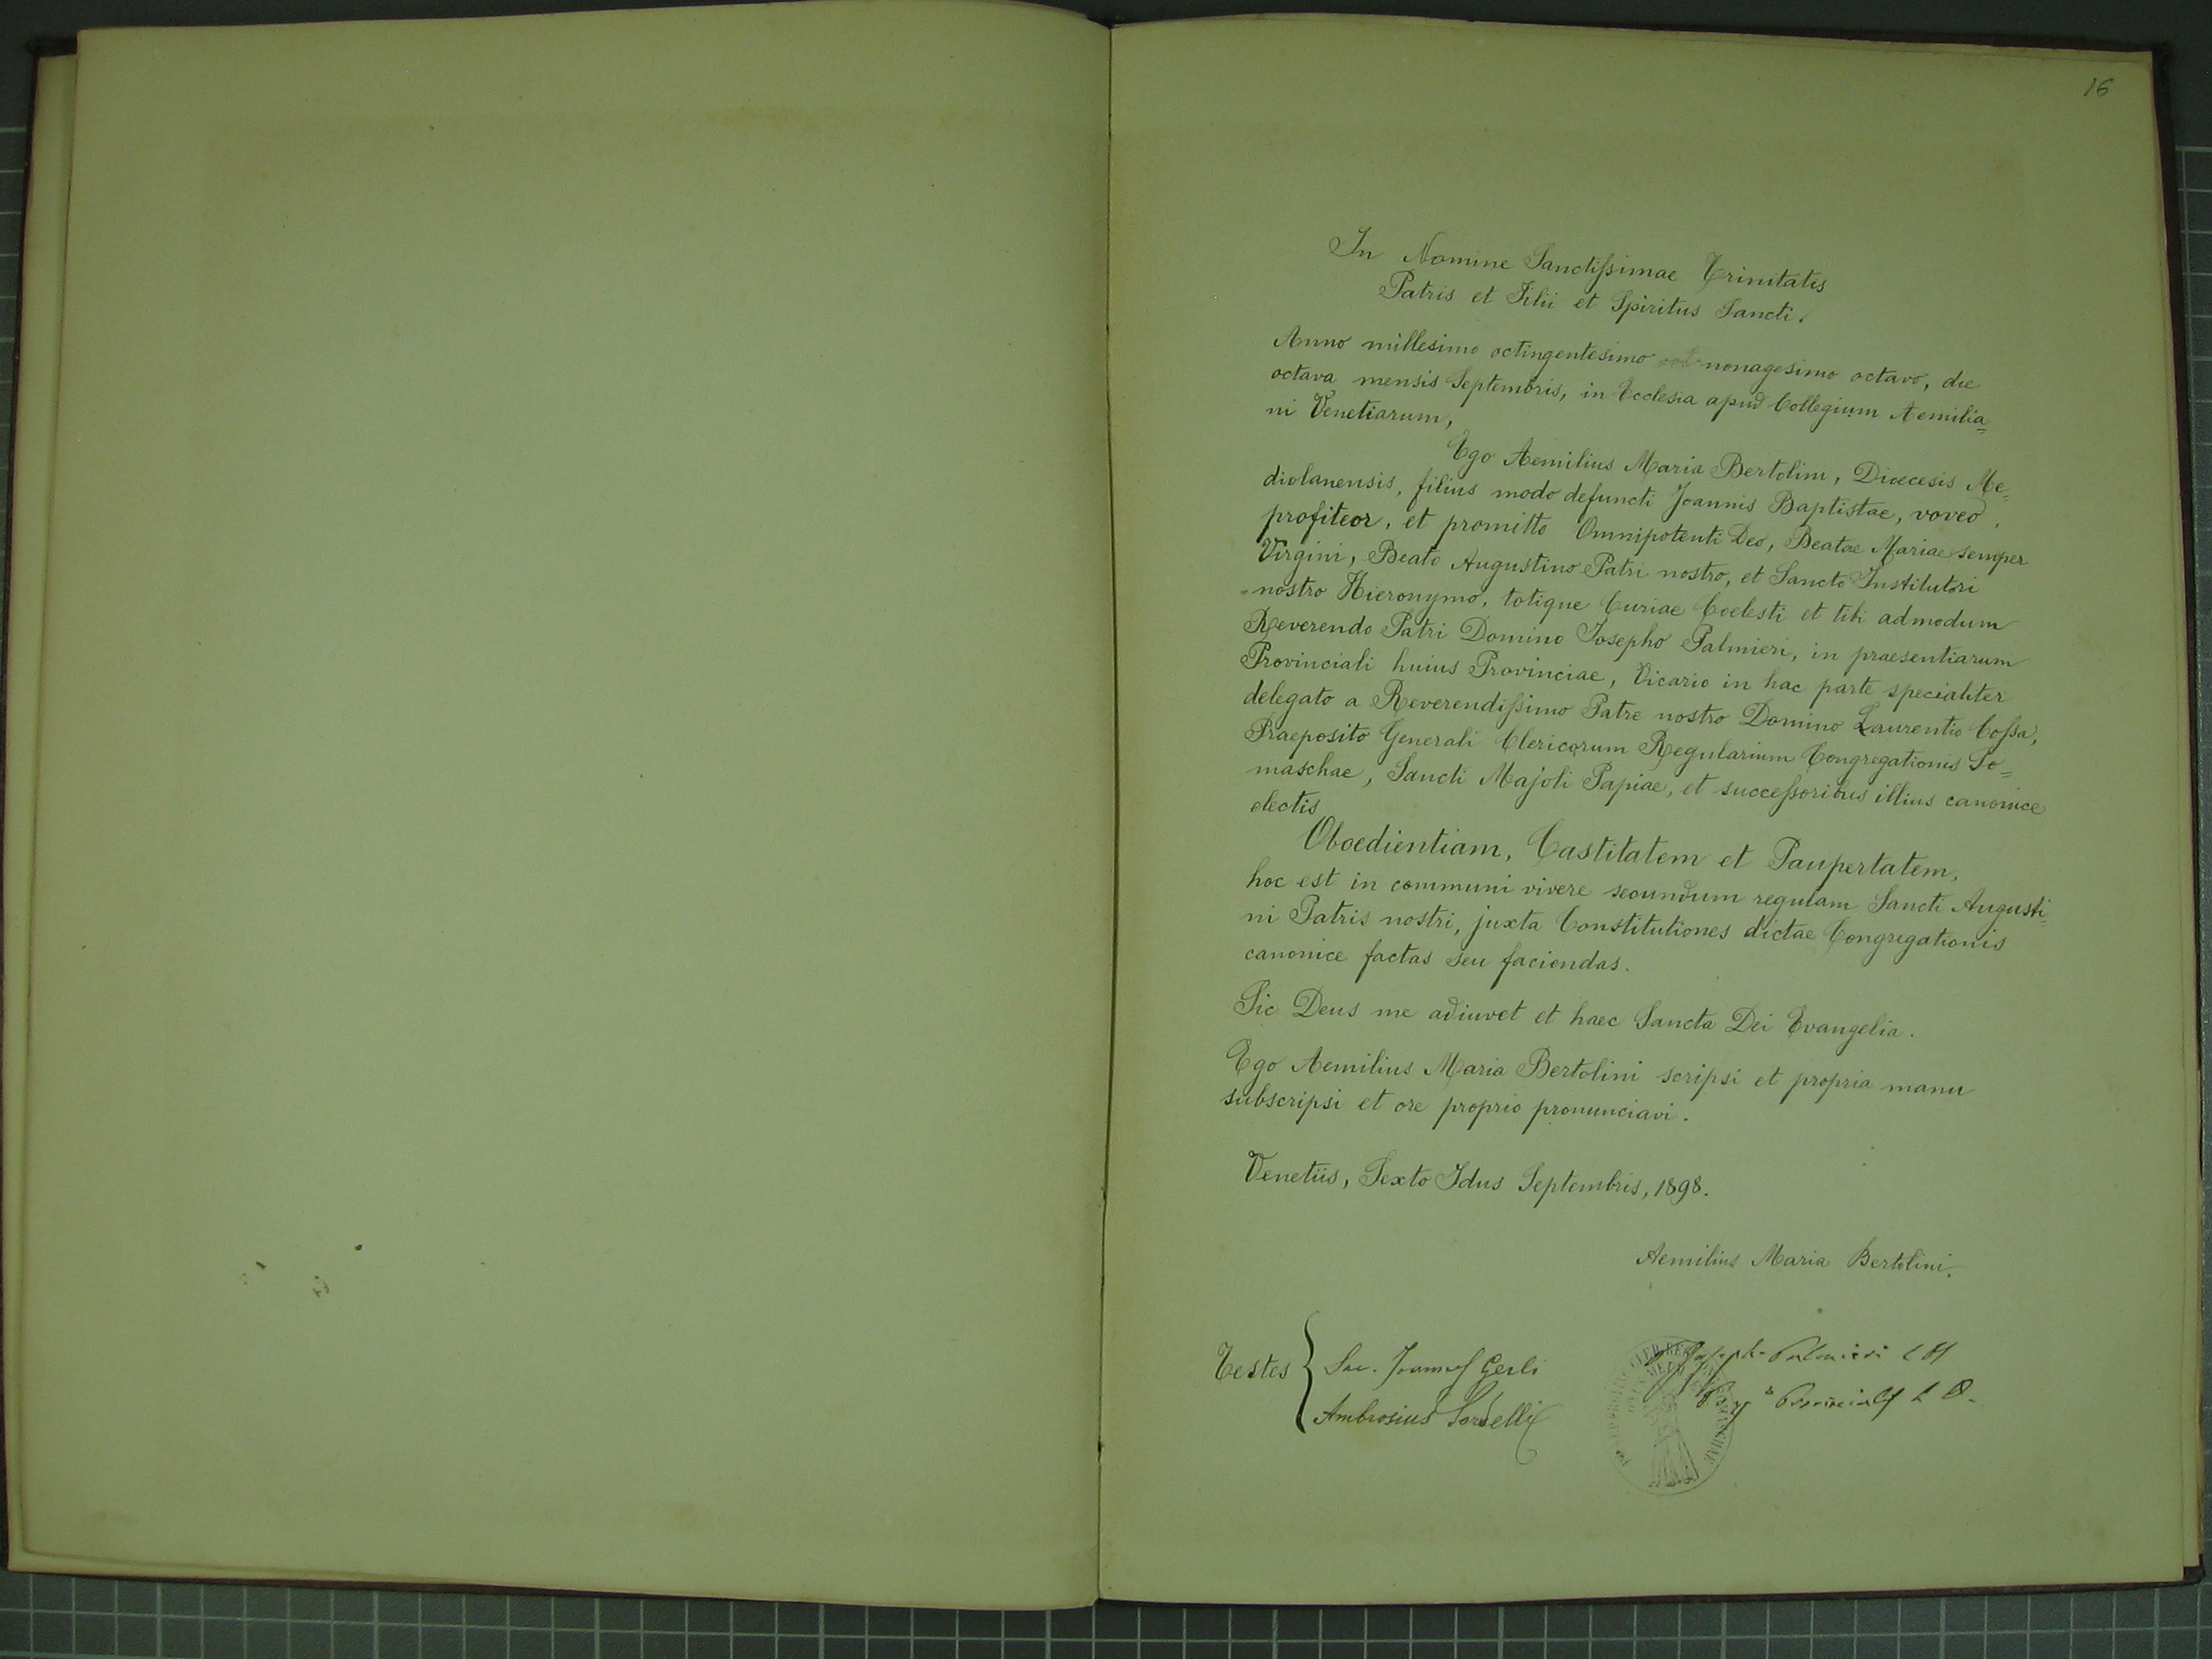 16
In Nomine Sanctissimae Trinitatis
Patris et Filii et Spiritus Sancti.
Anno millesimo octingentesimo nonagesimo octavo, die
octava mensis Septembris, in Ecclesia apud Collegium Aemilia=
ni Venetiarum,
Ego Aemilius Maria Bertolini, Dioecesis Me=
diolanensis, filius modo defuncti Joannis Baptistae, voveo,
profiteor, et promitto Omnipotenti Deo, Beatae Mariae semper
Virgini, Beato Augustino Patri nostro, et Sancto Institutori
nostro Hieronymo, totique Curiae Coelesti et tibi admodum
Reverendo Patri Domino Josepho Palmieri, in praesentiarum
Provinciali huius Provinciae, Vicario in hac parte specialiter
delegato a Reverendissimo Patre nostro Domino Laurentio Cossa,
Praeposito Generali Clericorum Regularium Congregationis So=
maschae, Sancti Majoli Papiae, et successoribus illius canonice
electis
Oboedientiam, Castitatem et Paupertatem,
hoc est in communi vivere secundum regulam Sancti Augusti=
ni Patris nostri, juxta Constitutiones dictae Congregationis
canonice factas seu faciendas.
Sic Deus me adiuvet et haec Sancta Dei Evangelia.
Ego Aemilius Maria Bertolini scripsi et propria manu
subscripsi et ore proprio pronunciavi.
Venetiis, Sexto Idus Septembris, 1898.
Aemilius Maria Bertolini.
Testes
Sac. Joannes Gerli
Ambrosius Sordelli
Palmieri